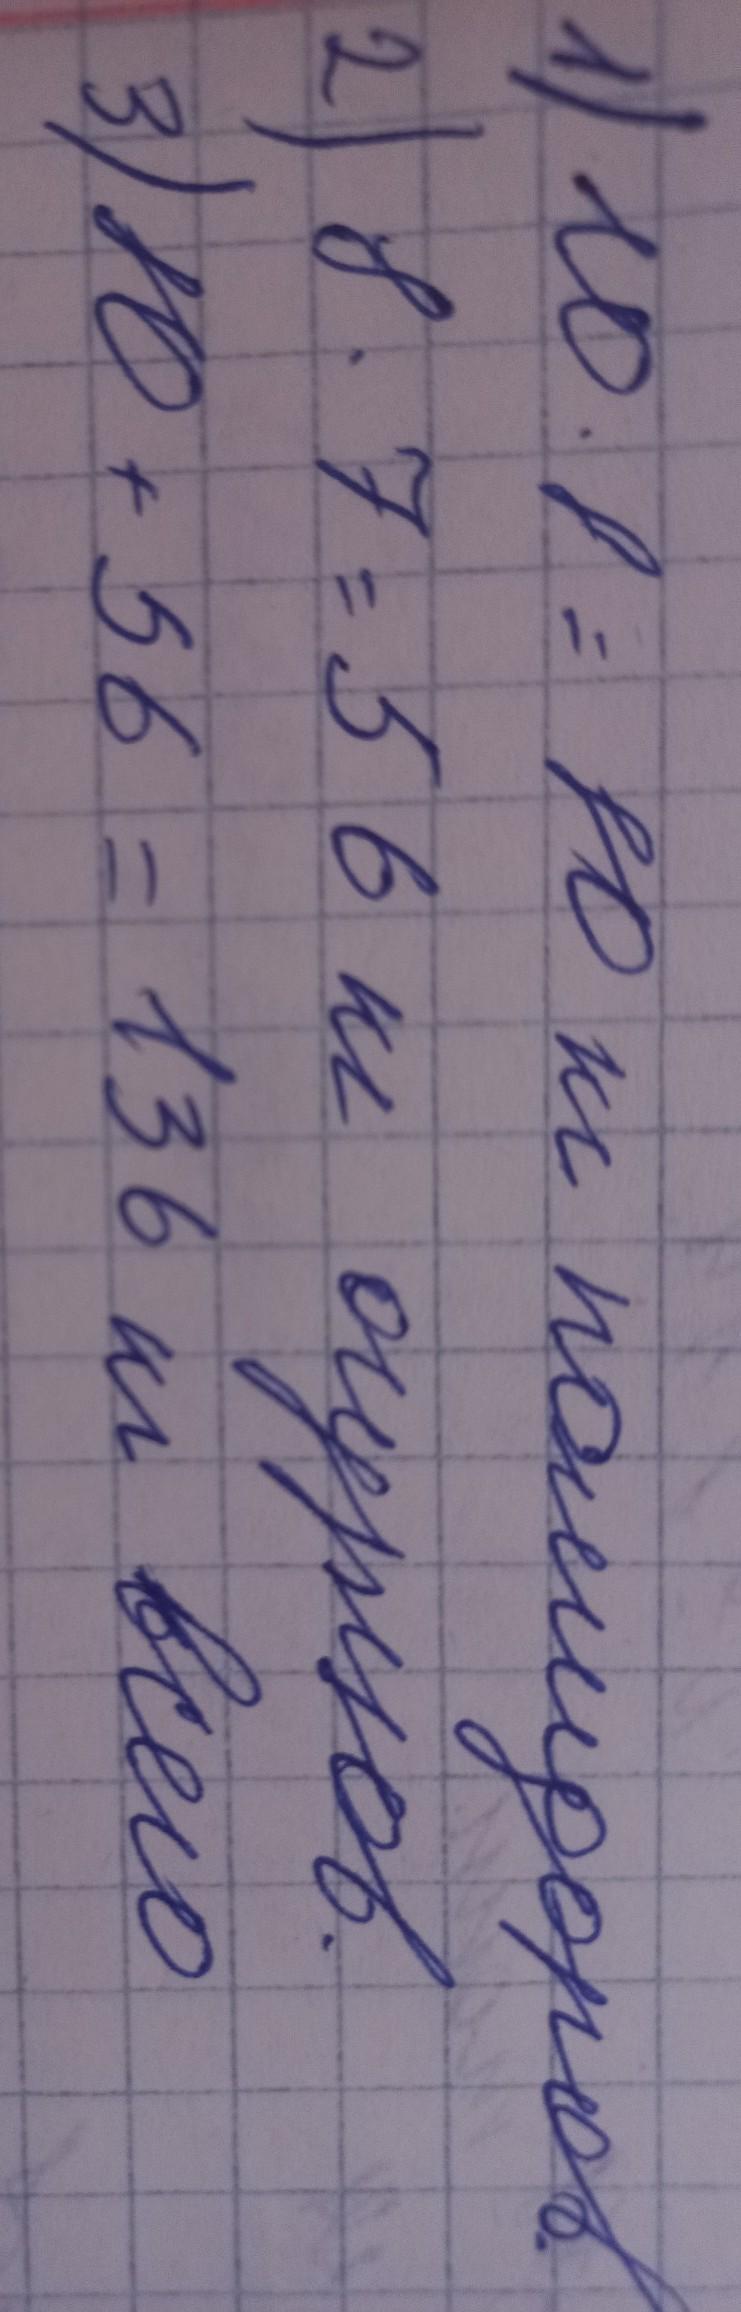 1) 10 · 8 = 80 кг помидоров.
2) 8 · 7 = 56 кг огурцов.
3) 80 + 56 = 136 кг всего